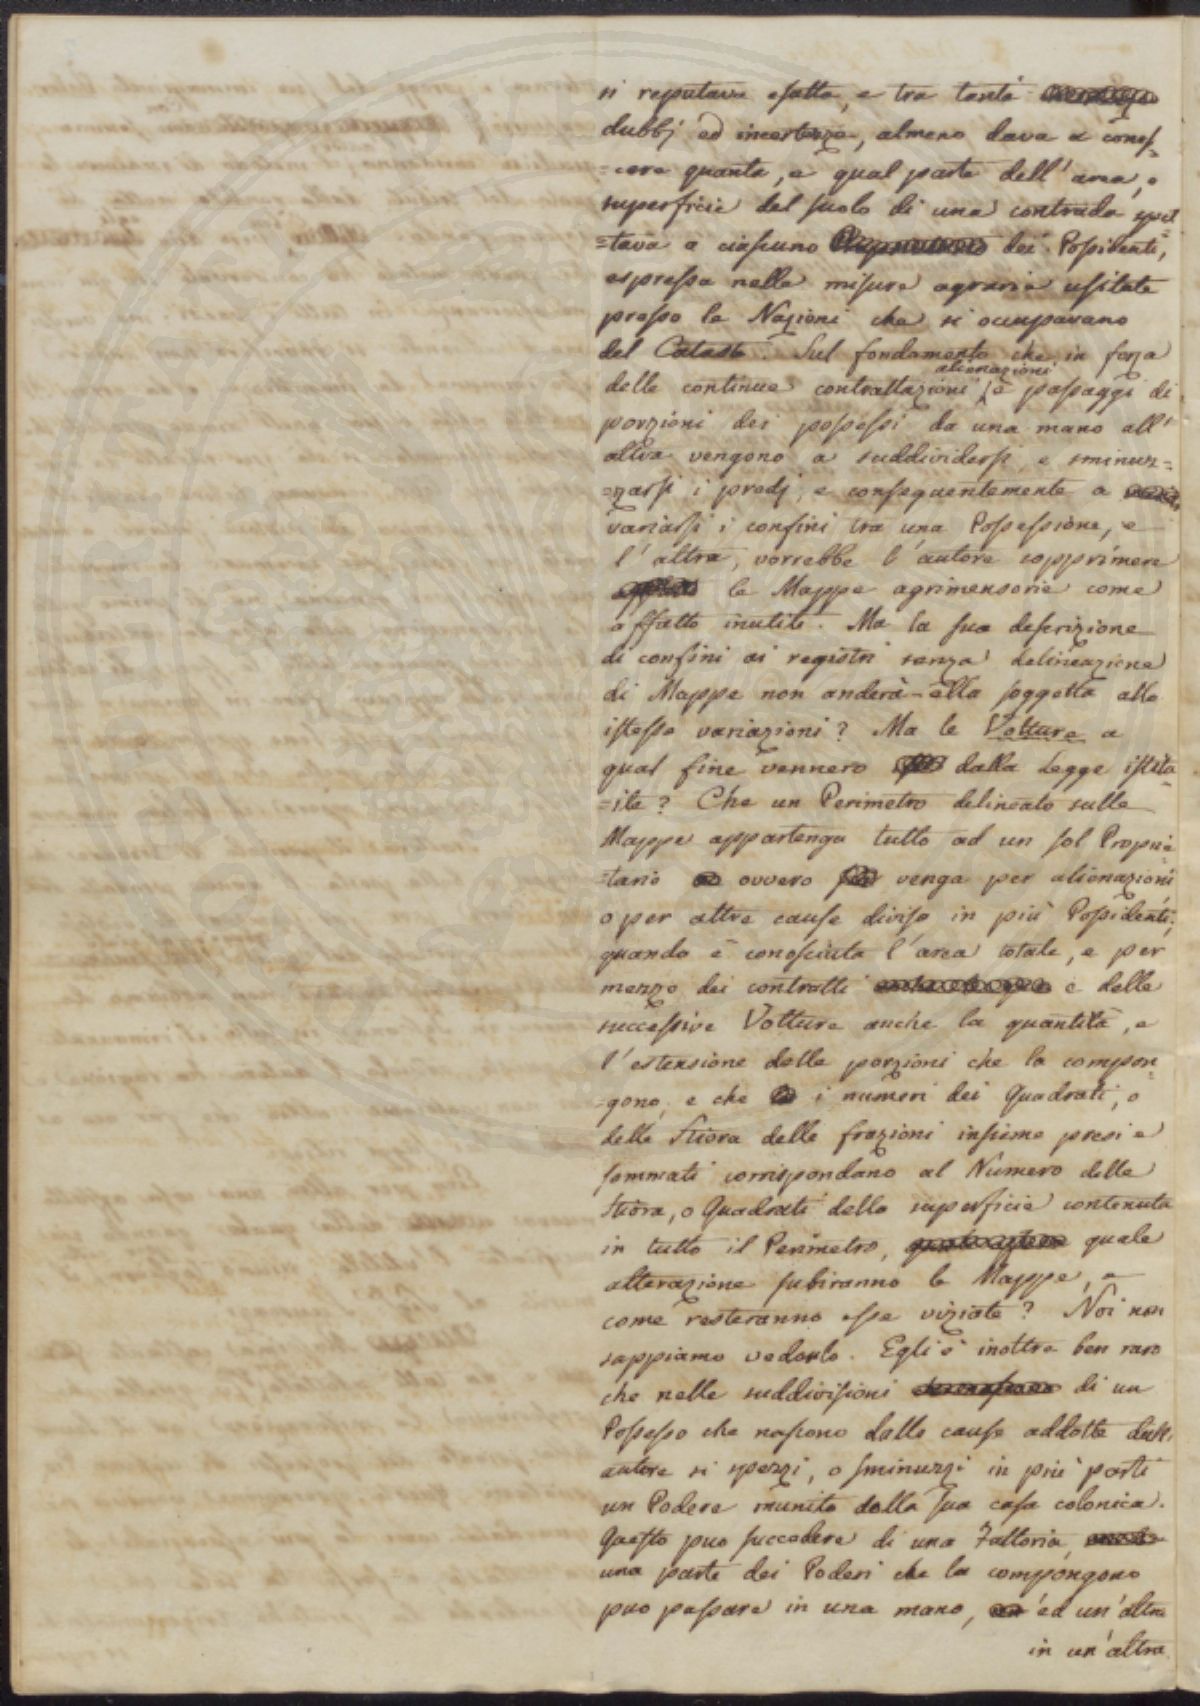 si reputava esatta, e tra tanti
dubbj ed incertezze, almeno dava a conos-
=cere quanta, e qual parte dell'area, o
superficie del suolo di una contrada spet-
=tava a ciascuno dei Possidenti,
espressa nelle misure agrarie usitate
presso le Nazioni che si occupavano
del Catasto. Sul fondamento che in forza
delle continue contrattazioni, alienazioni e passaggi di
porzioni dei possessi da una mano all'
altra vengono a suddividersi, e sminuz-
=zarsi i predj, e conseguentemente a
variarsi i confini tra una Possessione, e
l'altra, vorrebbe l'autore sopprimere
le Mappe agrimensorie come
affatto inutili. Ma la sua descrizione
di confini ai registri senza delineazione
di Mappe non anderà-ella soggetta alle
istesse variazioni? Ma le Volture a
qual fine vennero dalla Legge istitu-
=ite? Che un Perimetro delineato sulle
Mappe appartenga tutto ad un sol Proprie-
=tario ovvero venga per alienazioni
o per altre cause diviso in più Possidenti,
quando è conosciuta l'area totale, e per
mezzo dei contratti e delle
successive Volture anche la quantità, e
l'estensione delle porzioni che la compon-
=gono, e che i numeri dei Quadrati, o
delle Stiora delle frazioni insieme presi e
sommati corrispondano al Numero delle
Stiora, o Quadrati della superficie contenuta
in tutto il Perimetro, quale
alterazione subiranno le Mappe, e
come resteranno esse viziate? Noi non
sappiamo vederlo. Egli è inoltre ben raro
che nelle suddivisioni di un
Possesso che nascono dalle cause addotte dall'
autore si spezzi, o sminuzzi in più parti
un Podere munito della sua casa colonica.
Questo puo succedere di una Fattoria,
una parte dei Poderi che la compongono
puo passare in una mano, ed un'altra
in un'altra